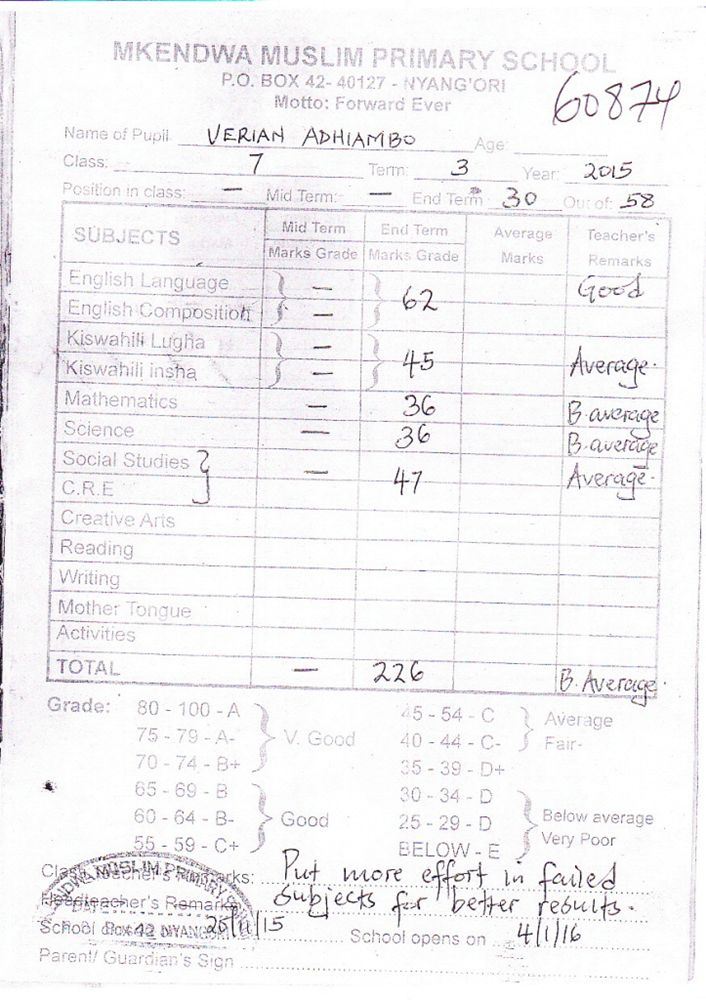 MKENDWA MUSLIM PRIMARY SCHOOL
P.O. BOX 42- 40127 - NYANG'ORI
Motto: Forward Ever
60874
Name of Pupil VERIAN ADHIAMBO Age:
Class: 7 Term: 3 Year: 2015
Position in class: – Mid Term: – End Term 30 Out of: 58
SUBJECTS Mid Term End Term Average Teacher's
Marks Grade Marks Grade Marks Remarks
English Language – 62 Good
English Composition –
Kiswahili Lugha – 45 Average.
Kiswahili insha –
Mathematics – 36 B.average
Science – 36 B.average
Social Studies – 47 Average.
C.R.E
Creative Arts
Reading
Writing
Mother Tongue
Activities
TOTAL – 226 B.Average
Grade: 80 - 100 - A 45 - 54 - C Average
75 - 79 - A- V. Good 40 - 44 - C- Fair-
70 - 74 - B+ 35 - 39 - D+
65 - 69 - B 30 - 34 - D
60 - 64 - B- Good 25 - 29 - D Below average
55 - 59 - C+ BELOW - E Very Poor
Class teacher's Remarks: Put more effort in failed
Headteacher's Remark subjects for better results.
School 25/11/15 School opens on 4/1/16
Parent/ Guardian's Sign
MUSLIM PRIMARY
Box 42 NYANG'ORI